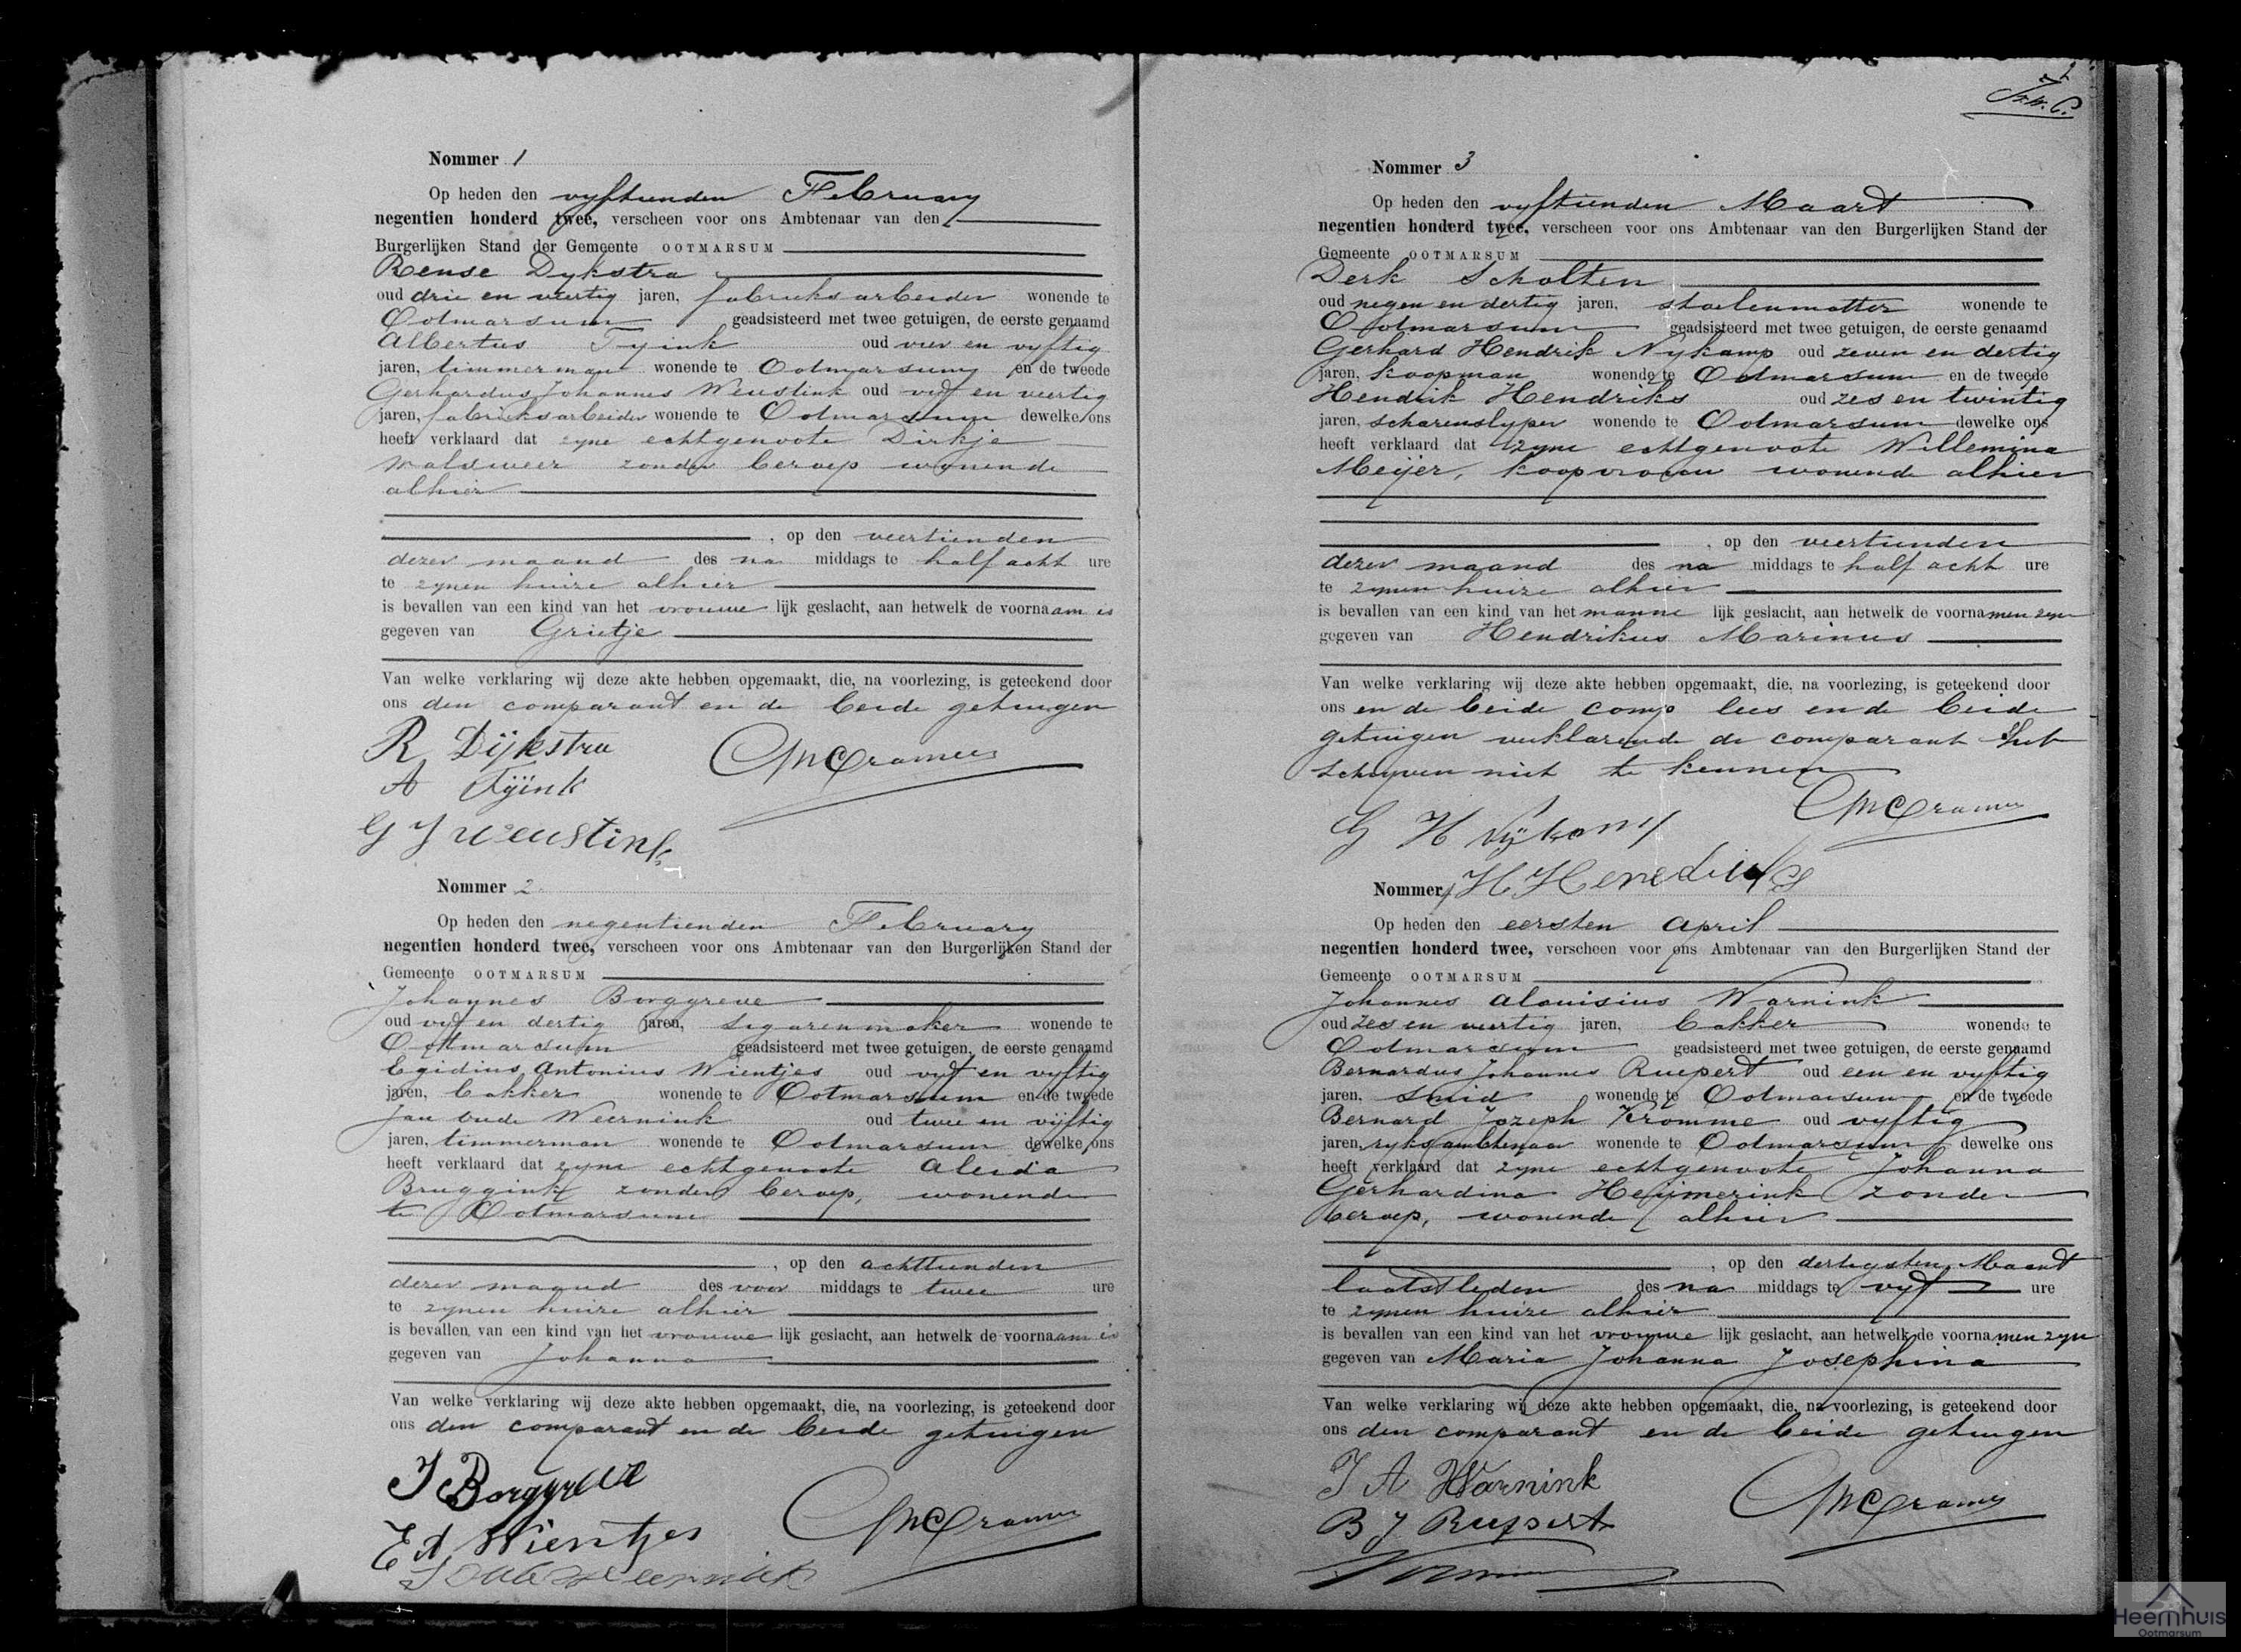 Nommer 1
Op heden den vyftienden February
negentien honderd twee, verscheen voor ons Ambtenaar van den
Burgerlijken Stand der Gemeente OOTMARSUM
Rense Dykstra
oud drie en veertig jaren, fabrieksarbeider wonende te
Ootmarsum geadsisteerd met twee getuigen, de eerste genaamd
Albertus Tyink oud vier en vyftig
jaren, timmerman wonende te Ootmarsum en de tweede
Gerhardus Johannes Weustink oud vyf en veertig
jaren, fabrieksarbeider wonende te Ootmarsum dewelke ons
heeft verklaard dat zyne echtgenoote Dirkje
zonder beroep wonende
alhier
, op den veertienden
dezer maand des na middags te half acht ure
te zynen huize alhier
is bevallen van een kind van het vrouwe lijk geslacht, aan hetwelk de voornaam is
gegeven van Grietje
Van welke verklaring wij deze akte hebben opgemaakt, die, na voorlezing, is geteekend door
ons den comparant en de beide getuigen
R Dijkstra
Cramer
A Tijink
G J Weustink
Nommer 2
Op heden den negentienden February
negentien honderd twee, verscheen voor ons Ambtenaar van den Burgerlijken Stand der
Gemeente OOTMARSUM
Johannes Borggreve
oud vyf en dertig jaren, sigarenmaker wonende te
Ootmarsum geadsisteerd met twee getuigen, de eerste genaamd
Egidius Antonius Wientjes oud vyf en vyftig
jaren, bakker wonende te Ootmarsum en de tweede
Jan oude Weernink oud twee en vijftig
jaren, timmerman wonende te Ootmarsum dewelke ons
heeft verklaard dat zyne echtgenoote Aleida
Bruggink zonder beroep, wonende
te Ootmarsum
, op den achttienden
dezer maand des voor middags te twee ure
te zynen huize alhier
is bevallen van een kind van het vrouwe lijk geslacht, aan hetwelk de voornaam is
gegeven van Johanna
Van welke verklaring wij deze akte hebben opgemaakt, die, na voorlezing, is geteekend door
ons den comparant en de beide getuigen
J Borggreve
E A Wientjes
Cramer
J oude Weernink
Nommer 3
Op heden den vyftienden Maart
negentien honderd twee, verscheen voor ons Ambtenaar van den Burgerlijken Stand der
Gemeente OOTMARSUM
Derk Scholten
oud negen en dertig jaren, stoelenmatter wonende te
Ootmarsum geadsisteerd met twee getuigen, de eerste genaamd
Gerhard Hendrik Nykamp oud zeven en dertig
jaren, koopman wonende te Ootmarsum en de tweede
Hendrik Hendriks oud zes en twintig
jaren, scharenslyper wonende te Ootmarsum dewelke ons
heeft verklaard dat zyne echtgenoote Willemina
Meijer, koopvrouw wonende alhier
, op den veertienden
dezer maand des na middags te half acht ure
te zynen huize alhier
is bevallen van een kind van het manne lijk geslacht, aan hetwelk de voornamen zyn
gegeven van Hendrikus Marinus
Van welke verklaring wij deze akte hebben opgemaakt, die, na voorlezing, is geteekend door
ons en de beide en de beide
getuigen verklarende de comparant
schryven niet te kennen
Cramer
G H Nijkamp
Nommer H Hendriks
Op heden den eersten April
negentien honderd twee, verscheen voor ons Ambtenaar van den Burgerlijken Stand der
Gemeente OOTMARSUM
Johannes Alouisius Warnink
oud zes en veertig jaren, bakker wonende te
Ootmarsum geadsisteerd met twee getuigen, de eerste genaamd
Bernardus Johannes Ruepert oud een en vyftig
jaren, smid wonende te Ootmarsum en de tweede
Bernard Jozeph Kromme oud vyftig
jaren, ryksambtenaar wonende te Ootmarsum dewelke ons
heeft verklaard dat zyne echtgenoote Johanna
Gerhardina Heijmerink zonder
beroep, wonende alhier
, op den dertigsten Maart
laatstleden des na middags te vyf ure
te zynen huize alhier
is bevallen van een kind van het vrouwe lijk geslacht, aan hetwelk de voornamen zyn
gegeven van Maria Johanna Josephina
Van welke verklaring wij deze akte hebben opgemaakt, die, na voorlezing, is geteekend door
ons den comparant en de beide getuigen
J A Warnink
Cramer
B J Rupert
Heemhuis
Ootmarsum